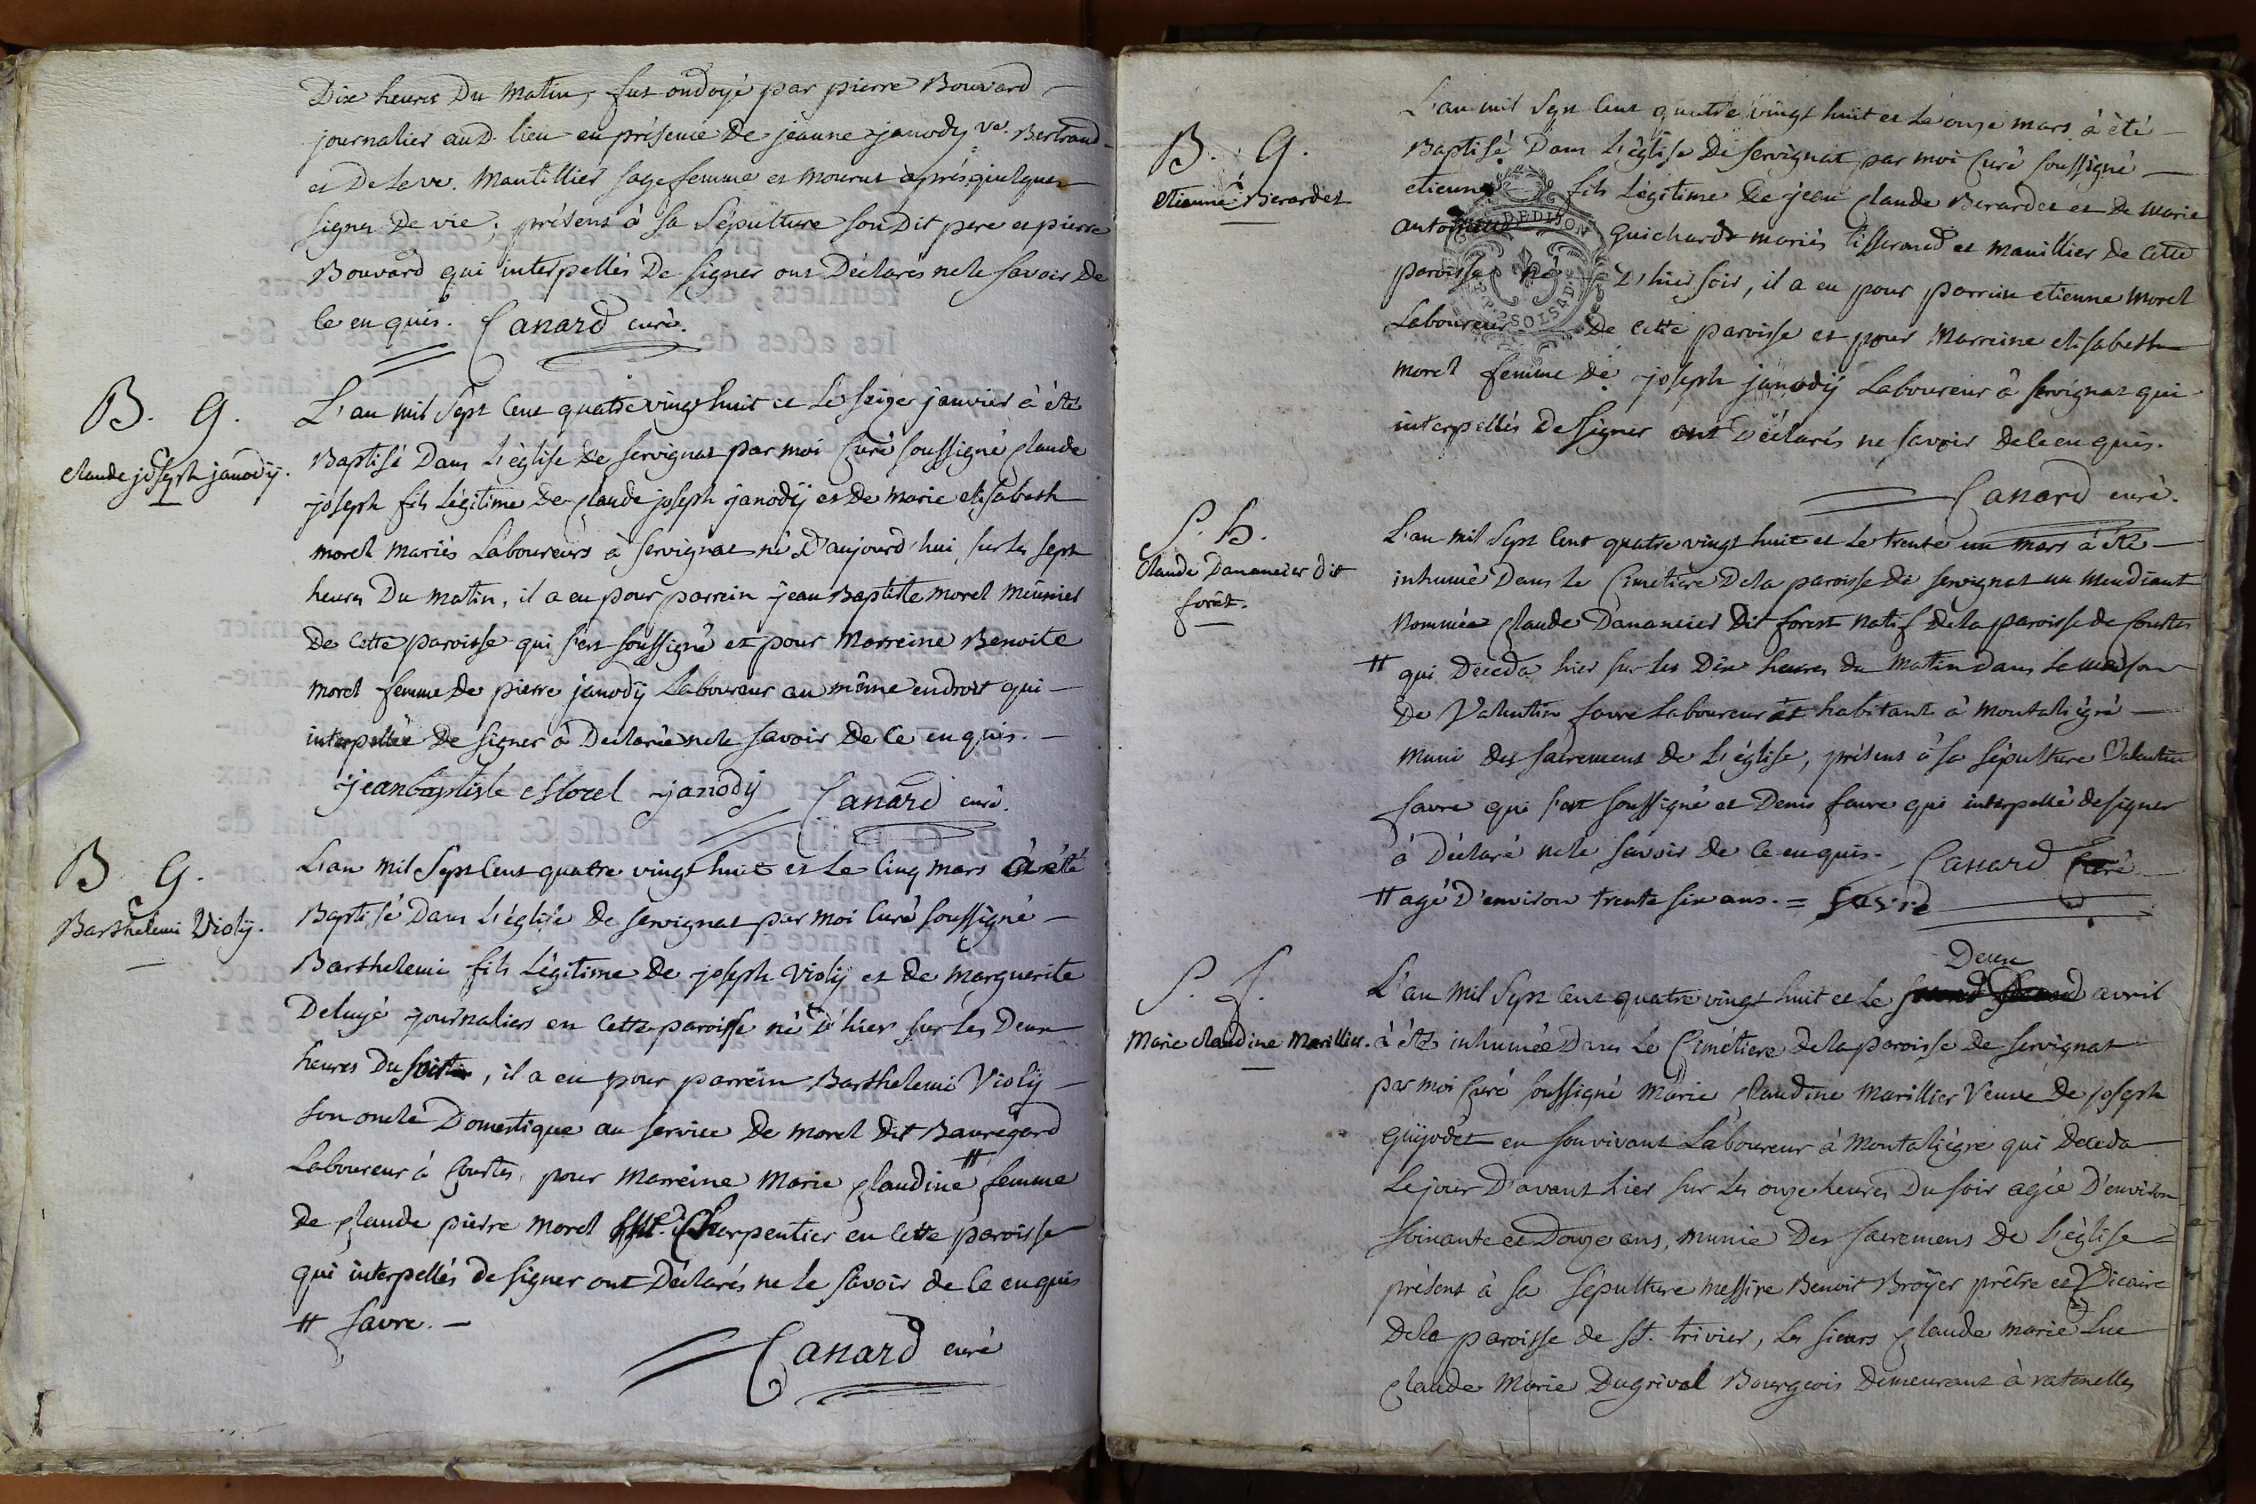 Dix heures Du Matin, fut ondoyé par pierre Bouvard
journalier aud. lieu en présence De jeanne janody ve. Bertrand
et De la ve. Mantillier sagefemme et mourut après quelques
signes De vie; présens à sa Sépulture son Dit pere et pierre
Bouvard qui interpellés De signer ont Déclarés ne le savoir De
ce enquis. Canard curé.
B. G.
claude joseph janodÿ.
L'an mil Sept Cent quatre vingt huit et le seize janvier à été
Baptisé Dans L'église De servignat par moi Curé soussigné Claude
joseph fils Légitime De Claude joseph janodÿ et De Marie elisabeth
morel mariés Laboureurs à servignat né D'aujourd'hui sur les sept
heures Du matin, il a eu pour parrein jean Baptiste morel meûnier
De Cette paroisse qui s'est soussigné et pour Marreine Benoite
morel femme De pierre janodÿ Laboureur au même endroit qui
interpellée De signer à Declarée ne le savoir De Ce enquis.
jeanbaptiste Morel janodÿ Canard curé.
B G.
Barthelemi Violÿ.
L'an mil Sept Cent quatre vingt huit et Le Cinq mars à été
Baptisé Dans L'église De servignat par moi Curé soussigné
Barthelemi fils Légitime De joseph Violÿ et De Marguerite
Deluyé journaliers en Cette paroisse né D'hier sur Les Deux
heures Du soir, il a eu pour parrein Barthelemi Violÿ
son oncle Domestique au service De morel Dit Bauregard
Laboureur à Courtes, pour Marreine Marie Claudine # femme
De Claude pierre morel Charpentier en Cette paroisse
qui interpellés De signer ont Déclarés ne le savoir de Ce enquis
# favre.
Canard curé
B. G.
etienne Berardet
L'an mil Sept Cent quatre vingt huit et Le onze mars à été
Baptisé Dans L'église De servignat par moi Curé soussigné
etienne fils Légitime De jean Claude Berardet et De Marie
antoinette Guichardt mariés tisserand et manillier De Cette
paroisse né D'hier soir, il a eu pour parrein etienne morel
Laboureur De Cette paroisse et pour Marreine elisabeth
morel femme De joseph janodÿ Laboureur à servignat qui
interpellés De signer ont Déclarés ne savoir de le enquis.
Canard curé.
S. h.
Claude Danancier dit
forêt.
L'an mil Sept Cent quatre vingt huit et Le trente un mars à été
inhumé Dans Le Cimetiere De la paroisse De servignat un mendiant
Nommée Claude Dananciet Dit forest natif De la paroisse de Courtes
# qui Deceda hier sur Les Dix heures Du Matin Dans la maison
De Valentin favre Laboureur et habitant à Montaligré
Muni Des sacremens De L'église, présens à sa Sépulture Valentin
favre qui s'est soussigné et Denis favre qui interpellé de signer
à Déclaré ne le savoir De Ce enquis. Canard Curé
# agé D'environ trente six ans. = favre
S. f.
Marie Claudine Marillier.
Deux
L'an Mil Sept Cent quatre vingt huit et Le avril
à été inhumée Dans Le Cimétiere De la paroisse De servignat
par moi Curé soussigné Marie Claudine Marillier Veuve De joseph
Guÿodet en son vivant Laboureur à Montaligré qui Deceda
Le jour D'avant hier sur Les onze heures Du soir agée D'environ
soixante et Douze ans, munie Des sacremens De L'église
présens à sa Sépulture Messire Benoit Broÿer prêtre et Vicaire
De la paroisse de St. trivier, Les sieurs Claude marie Luc
Claude Marie Dugrival Bourgeois Demeurant à ratenelles